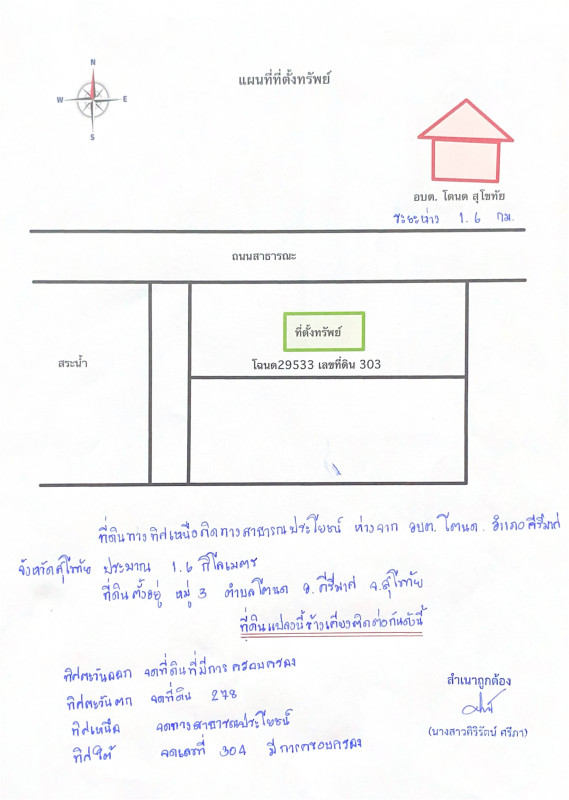 N
แผนที่ที่ตั้งทรัพย์
W E
S
อบต. โตนด สุโขทัย
ระยะห่าง 1.6 กม.
ถนนสาธารณะ
ที่ตั้งทรัพย์
สระน้ำ
โฉนด29533 เลขที่ดิน 303
ที่ดินทางทิศเหนือติดทางสาธารณประโยชน์ ห่างจาก อบต. โตนด. อำเภอคีรีมาศ
จังหวัดสุโขทัย ประมาณ 1.6 กิโลเมตร
ที่ดินตั้งอยู่ หมู่ 3 ตำบลโตนด อ.คีรีมาศ จ.สุโขทัย
ที่ดินแปลงนี้ข้างเคียงติดต่อกันดังนี้
ทิศตะวันออก จดที่ดินที่มีการครอบครอง
ทิศตะวันตก จดที่ดิน 278
ทิศเหนือ จดทางสาธารณประโยชน์
ทิศใต้ จดเลขที่ 304 มีการครอบครอง
สำเนาถูกต้อง
(นางสาวศิริรัตน์ ศรีภา)